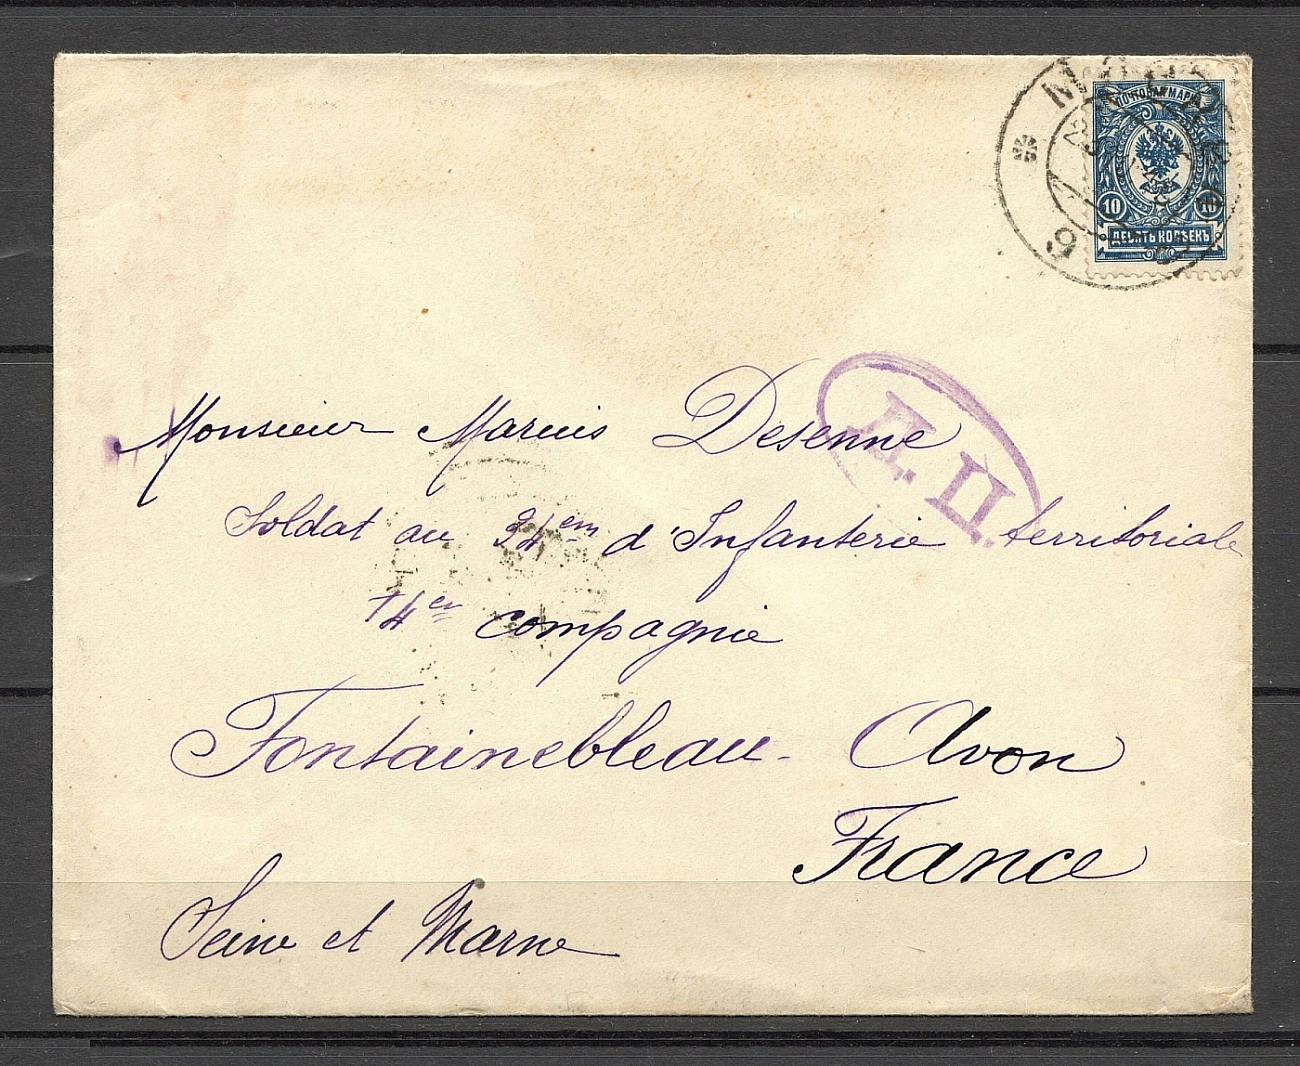 МОСКВА
ПОЧТОВАЯ МАРКА
10 10
ДЕСЯТЬ КОПѢЕКЪ
6
Д. Ц.
Monsieur Marius Desenne
Soldat au 34em d'Infanterie territoriale
14em compagnie
Fontainebleau - Avon
France
Seine et Marne